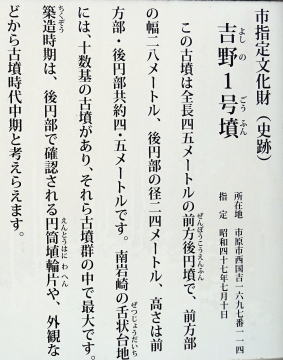 市指定文化財(史跡)
吉野1号墳
よしの ごうふん
所在地 市原市西国吉一六九七番一一四
指定 昭和四十七年七月十日
この古墳は全長四五メートルの前方後円墳で、前方部
ぜんぽうこうえんふん
の幅二八メートル、後円部の径二四メートル、高さは前
方部・後円部共約四・五メートルです。南岩崎の舌状台地
ぜつじょうだいち
には、十数基の古墳があり、それら古墳群の中で最大です。
築造時期は、後円部で確認される円筒埴輪片や、外観な
ちくぞう えんとうはにわへん
どから古墳時代中期と考えらえます。